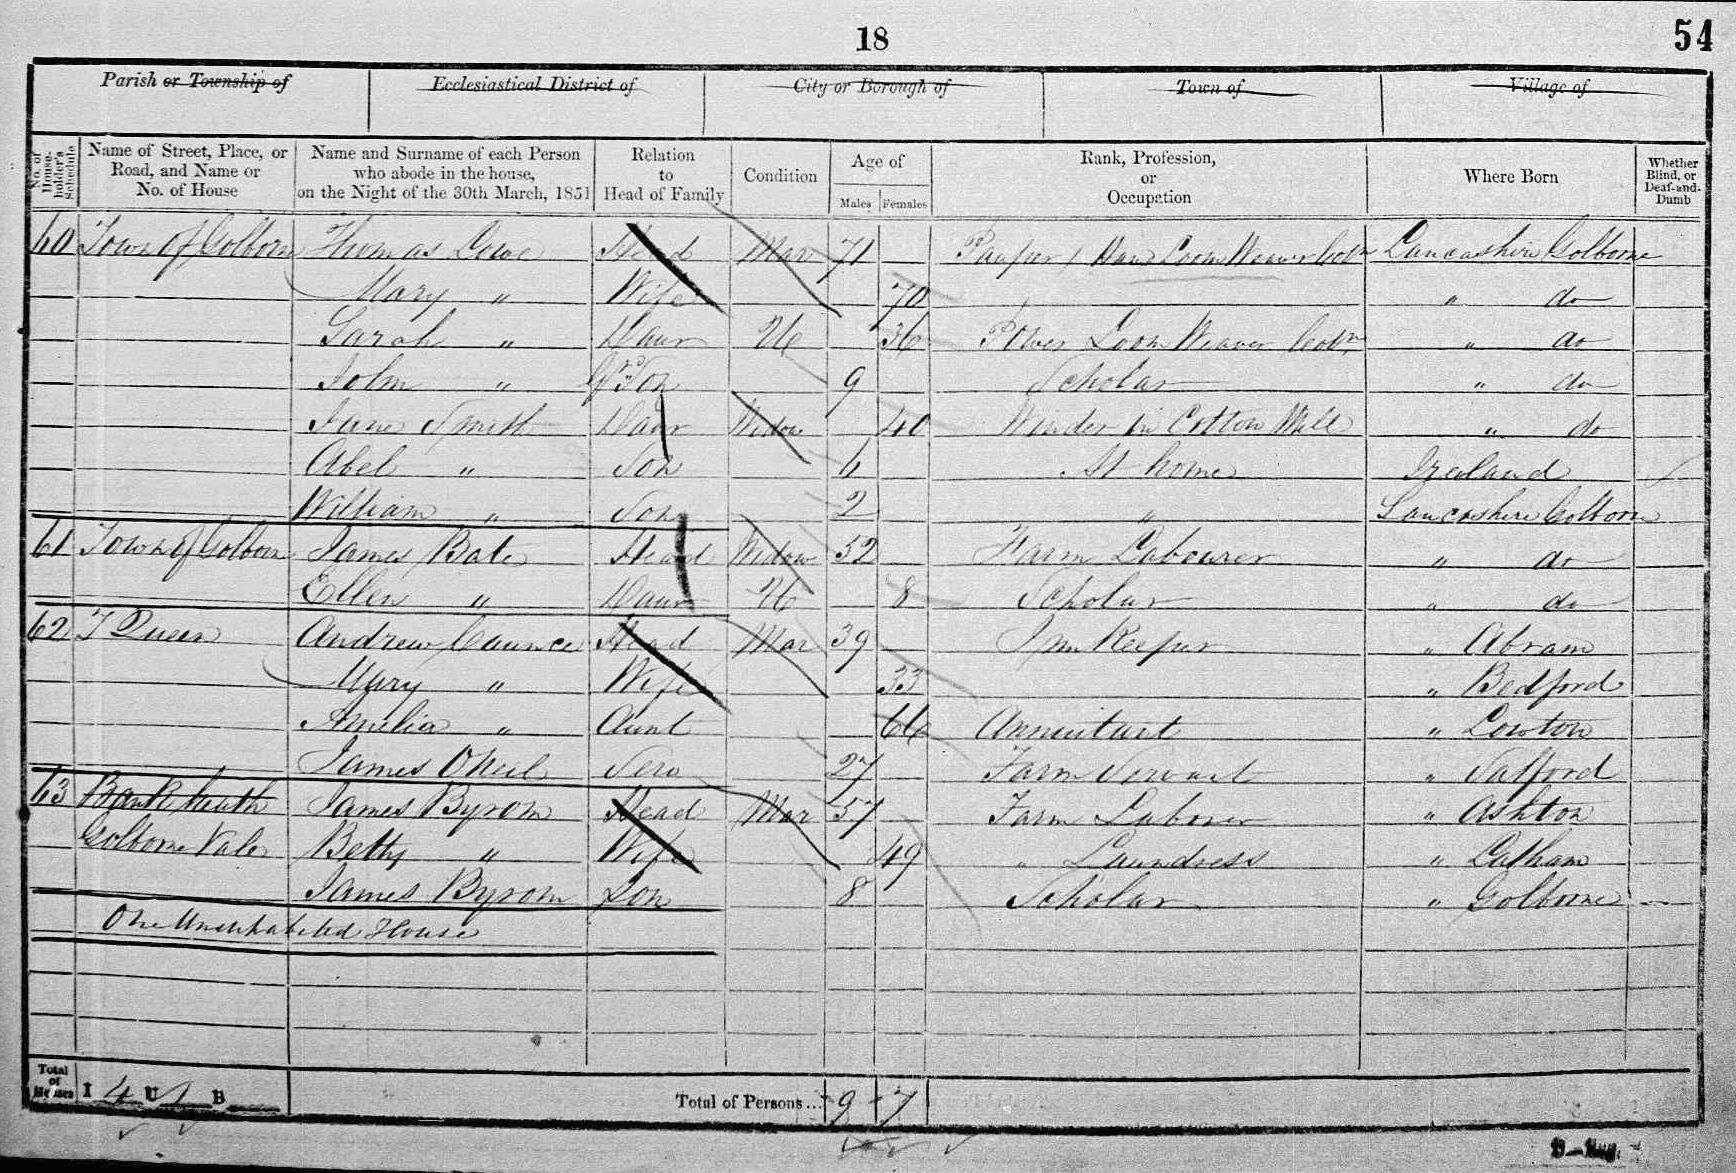 18
54
Parish or Township of Ecclesiastical District of City or Borough of Town of Village of
No. of House-holder's Schedule Name of Street, Place, or Road, and Name or No. of House Name and Surname of each Person who abode in the house, on the Night of the 30th March, 1851 Relation to Head of Family Condition Age of Males Females Rank, Profession, or Occupation Where Born Whether Blind, or Deaf-and-Dumb
60 Town of Golborn Thomas Lowe Head Mar 71 Pauper / Han Loom Weaver Lancashire Golborne
Mary " Wife 70 " do
Sarah " Daur U 36 Power Loom Weaver " do
John " Son 9 Scholar " do
Jane Smith Daur Widow 40 Winder in Cotton Mill " do
Abel " Son At home Ireland
William " Son 2 " Lancashire Golborne
61 Town of Golborn James Bate Head Widow 52 Farm Labourer " do
Ellen " Daur U 8 Scholar " do
62 Queen Andrew Head Mar 39 Inn Keeper " Abram
Mary " Wife 33 " Bedford
Amelia " Aunt 64 Annuitant " Lowton
James ONeil Serv 27 Farm Servant " Salford
63 Heath James Byrom Head Mar 57 Farm Laborer " Ashton
Golborne Vale Betty " Wife 49 " Laundress " Latham
James Byrom Son 8 Scholar " Golborne
One Uninhabited House
Total of Houses I 4 U 1 B Total of Persons... 9 7